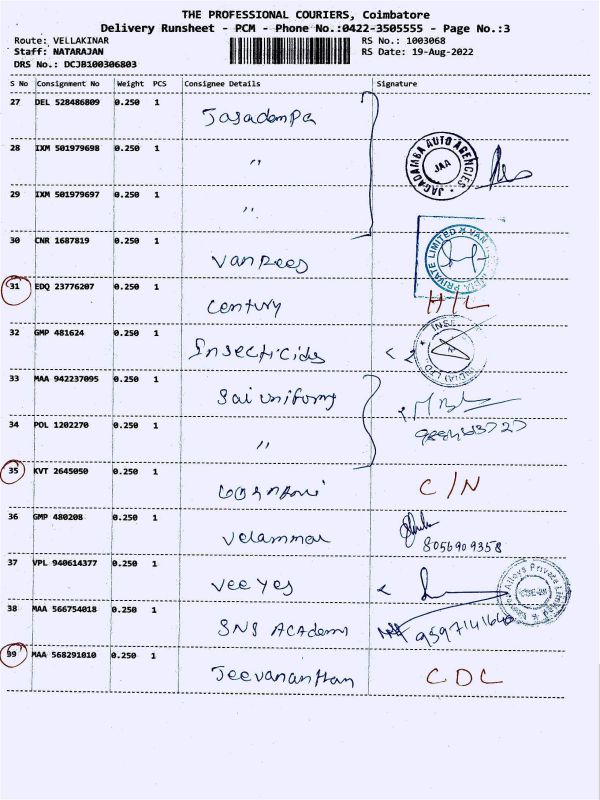 THE PROFESSIONAL COURIERS, Coimbatore
Delivery Runsheet - PCM - Phone No.:0422-3505555 - Page No.:3
Route: VELLAKINAR RS No.: 1003068
Staff: NATARAJAN RS Date: 19-Aug-2022
DRS No.: DCJB100306803
S No Consignment No Weight PCS Consignee Details Signature
27 DEL 528486809 0.250 1 Jagadampa
28 IXM 501979698 0.250 1 "
JAGADAMBA AUTO AGENCIES
JAA
29 IXM 501979697 0.250 1 "
30 CNR 1687819 0.250 1 VanRees
PRIVATE LIMITED
31 EDQ 23776207 0.250 1 Century H/L
32 GMP 481624 0.250 1 Insecticides
33 MAA 942237095 0.250 1 Sai uniforms
34 POL 1202270 0.250 1 "
35 KVT 2645050 0.250 1 C/N
36 GMP 480208 0.250 1 Velammal 8056909358
37 VPL 940614377 0.250 1 Vee Yes
Alloys Private Limited
38 MAA 566754018 0.250 1 SNS ACAdemy 9597141640
39 MAA 568291010 0.250 1 Jeevananthan CDC